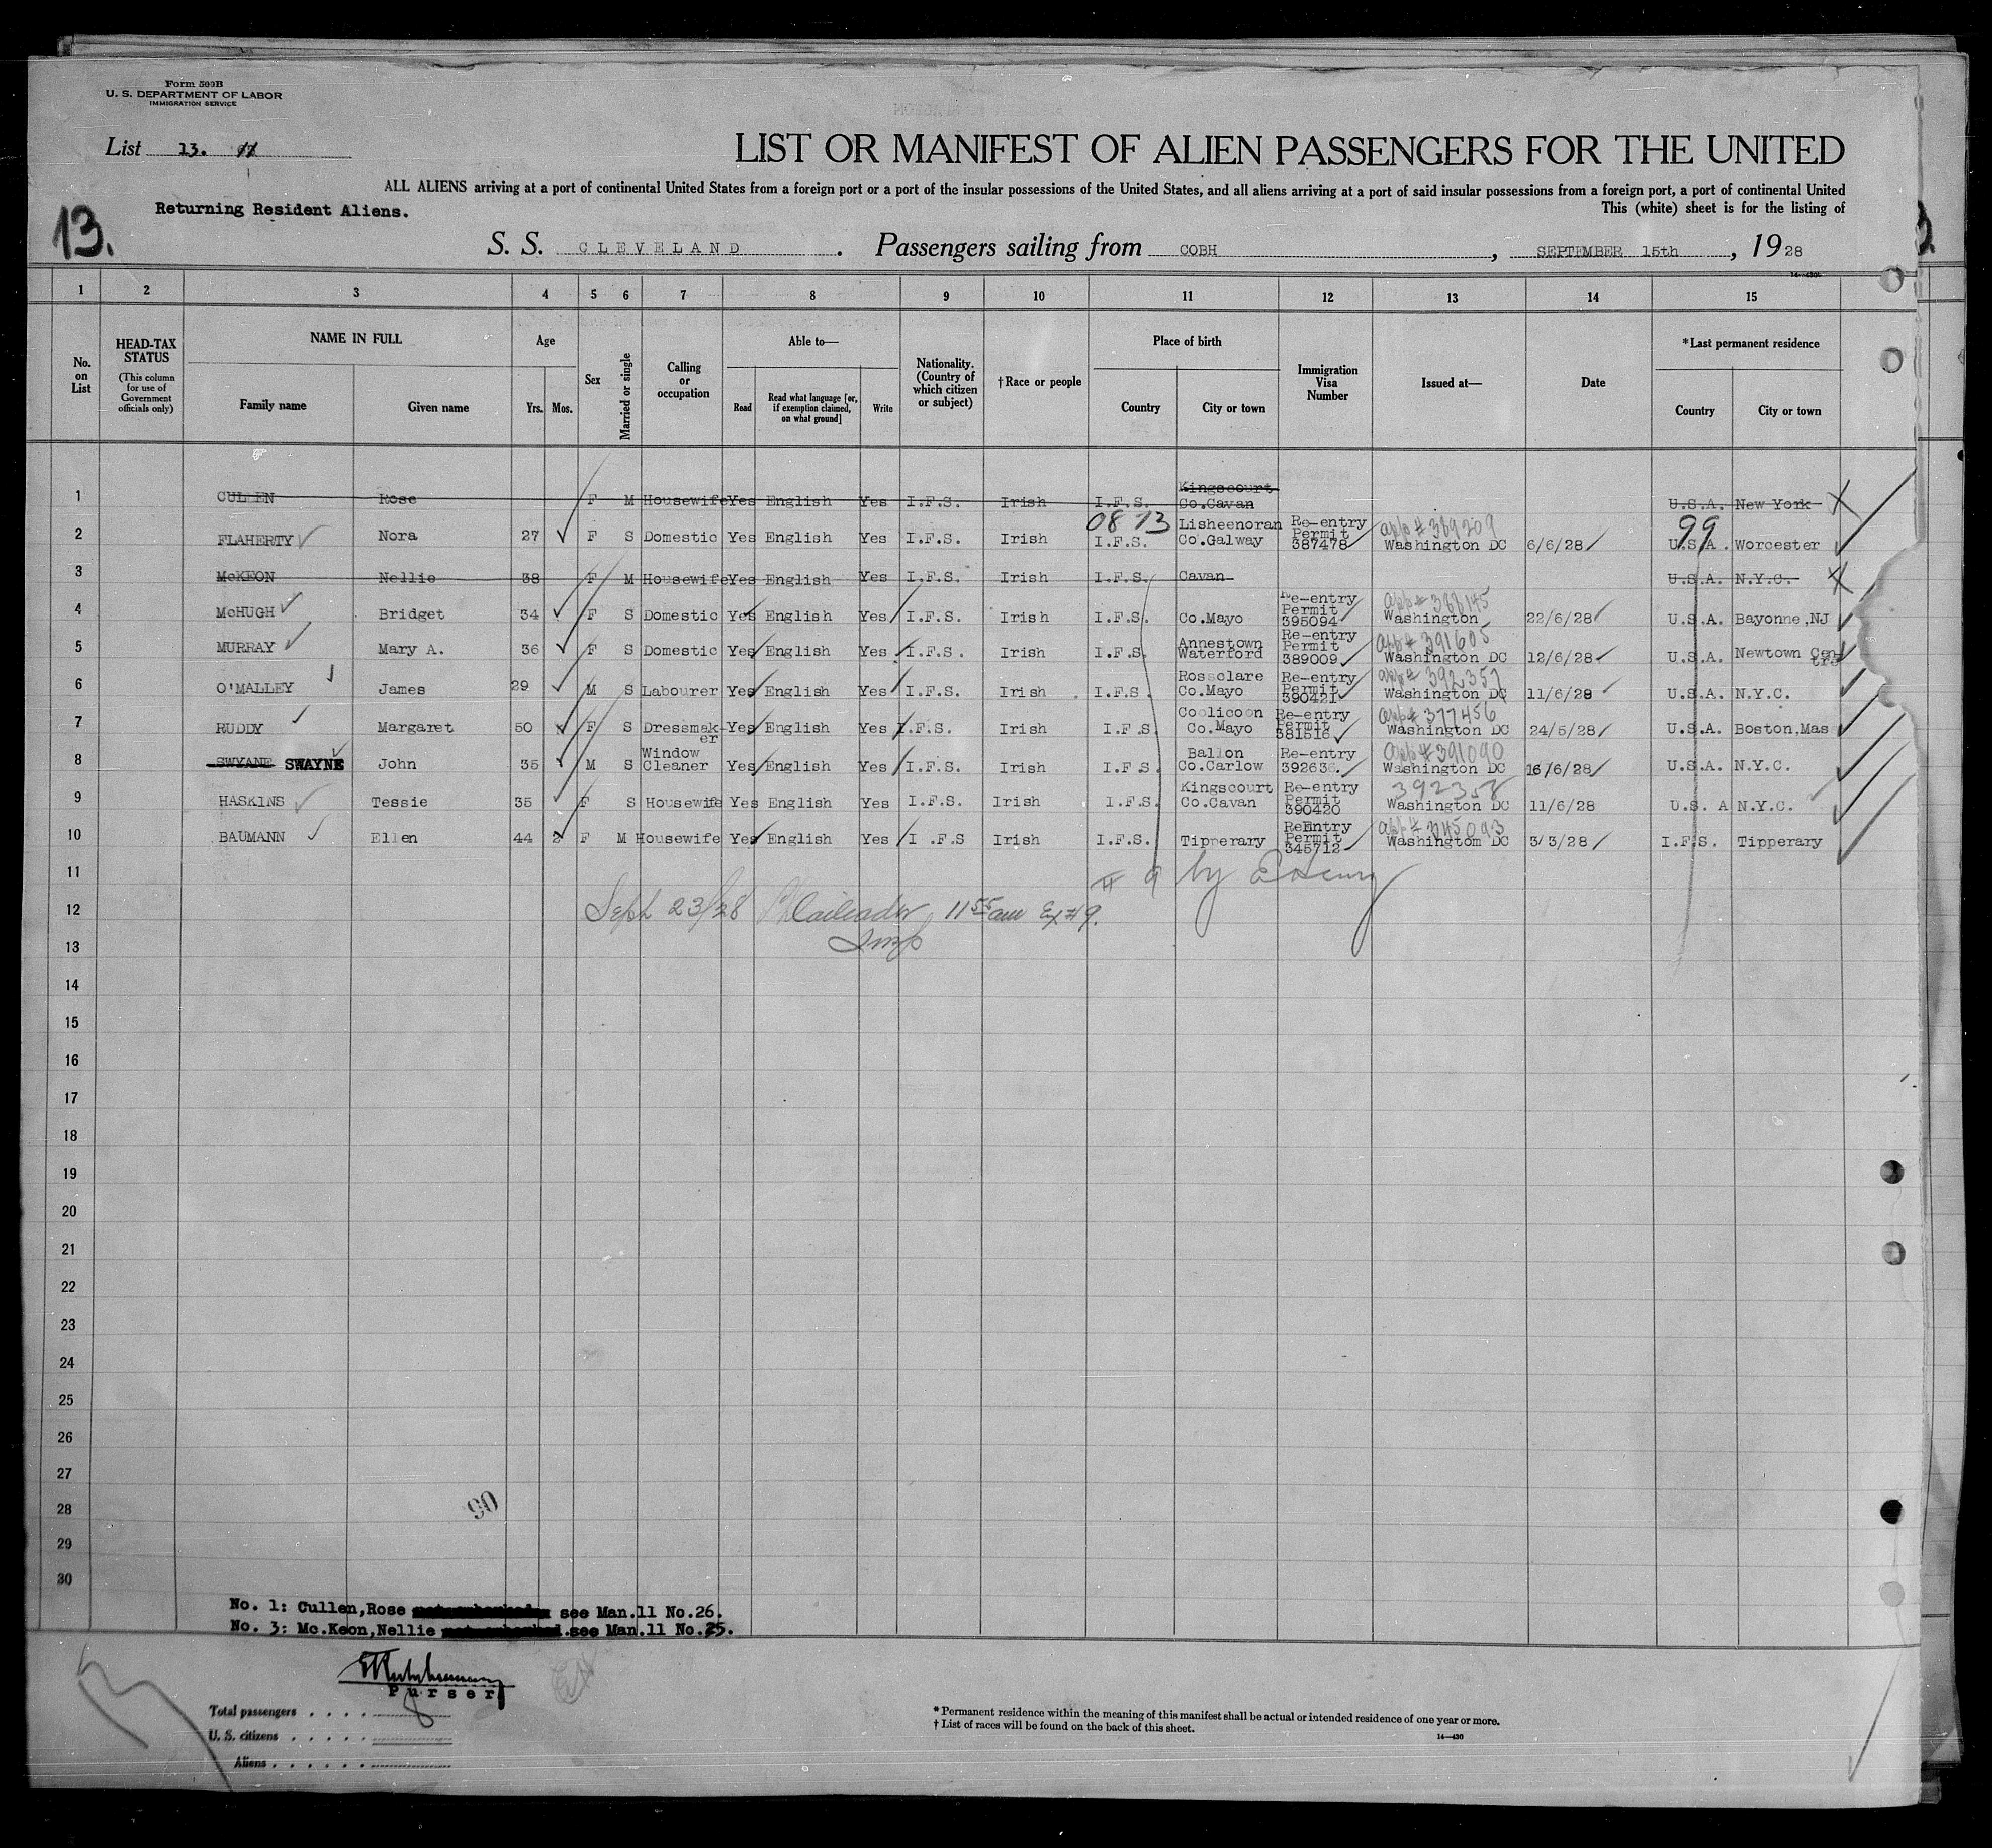 Form 500B
U. S. DEPARTMENT OF LABOR
IMMIGRATION SERVICE
List 13. 11
LIST OR MANIFEST OF ALIEN PASSENGERS FOR THE UNITED
ALL ALIENS arriving at a port of continental United States from a foreign port or a port of the insular possessions of the United States, and all aliens arriving at a port of said insular possessions from a foreign port, a port of continental United
Returning Resident Aliens.
This (white) sheet is for the listing of
13.
S. S. CLEVELAND . Passengers sailing from COBH , SEPTEMBER 15th , 1928
1 2 3 4 5 6 7 8 9 10 11 12 13 14 15
No. on List
HEAD-TAX STATUS (This column for use of Government officials only)
NAME IN FULL
Family name Given name
Age
Yrs. Mos.
Sex
Married or single
Calling or occupation
Able to—
Read
Read what language [or, if exemption claimed, on what ground]
Write
Nationality. (Country of which citizen or subject)
† Race or people
Place of birth
Country City or town
Immigration Visa Number
Issued at—
Date
* Last permanent residence
Country City or town
1 CULLEN Rose F M Housewife Yes English Yes I.F.S. Irish I.F.S. Kingscourt Co.Cavan U.S.A. New York
0813 99
2 FLAHERTY Nora 27 F S Domestic Yes English Yes I.F.S. Irish I.F.S. Lisheenoran Co.Galway Re-entry Permit 387478 app # 389209 Washington DC 6/6/28 U.S.A. Worcester
3 McKEON Nellie 38 F M Housewife Yes English Yes I.F.S. Irish I.F.S. Cavan U.S.A. N.Y.C.
4 McHUGH Bridget 34 F S Domestic Yes English Yes I.F.S. Irish I.F.S. Co.Mayo Re-entry Permit 395094 app # 388145 Washington 22/6/28 U.S.A. Bayonne,NJ
5 MURRAY Mary A. 36 F S Domestic Yes English Yes I.F.S. Irish I.F.S. Annestown Waterford Re-entry Permit 389009 app # 391605 Washington DC 12/6/28 U.S.A. Newtown Centre
6 O'MALLEY James 29 M S Labourer Yes English Yes I.F.S. Irish I.F.S. Rossclare Co.Mayo Re-entry Permit 390421 app # 392357 Washington DC 11/6/28 U.S.A. N.Y.C.
7 RUDDY Margaret 50 F S Dressmak-er Yes English Yes I.F.S. Irish I.F.S Coolicoon Co.Mayo Re-entry Permit 381516 app # 377456 Washington DC 24/5/28 U.S.A. Boston,Mas
8 SWYANE SWAYNE John 35 M S Window Cleaner Yes English Yes I.F.S. Irish I.F.S. Ballon Co.Carlow Re-entry 392636. app # 391090 Washington DC 16/6/28 U.S.A. N.Y.C.
9 HASKINS Tessie 35 F S Housewife Yes English Yes I.F.S. Irish I.F.S. Kingscourt Co.Cavan Re-entry Permit 390420 392358 Washington DC 11/6/28 U.S. A N.Y.C.
10 BAUMANN Ellen 44 2 F M Housewife Yes English Yes I .F.S Irish I.F.S. Tipperary ReEntry Permit 345712 app # 345093 Washingtom DC 3/3/28 I.F.S. Tipperary
11 # 9 by
12 Sept 23/28 11 55 am Ex # 9.
13
14
15
16
17
18
19
20
21
22
23
24
25
26
27
28 90
29
30
No. 1: Cullen,Rose see Man.11 No.26.
No. 3: Mc.Keon,Nellie .see Man.11 No.25.
Purser
Total passengers . . . . 8
U. S. citizens . . . . .
Aliens . . . . . .
* Permanent residence within the meaning of this manifest shall be actual or intended residence of one year or more.
† List of races will be found on the back of this sheet.
14—430